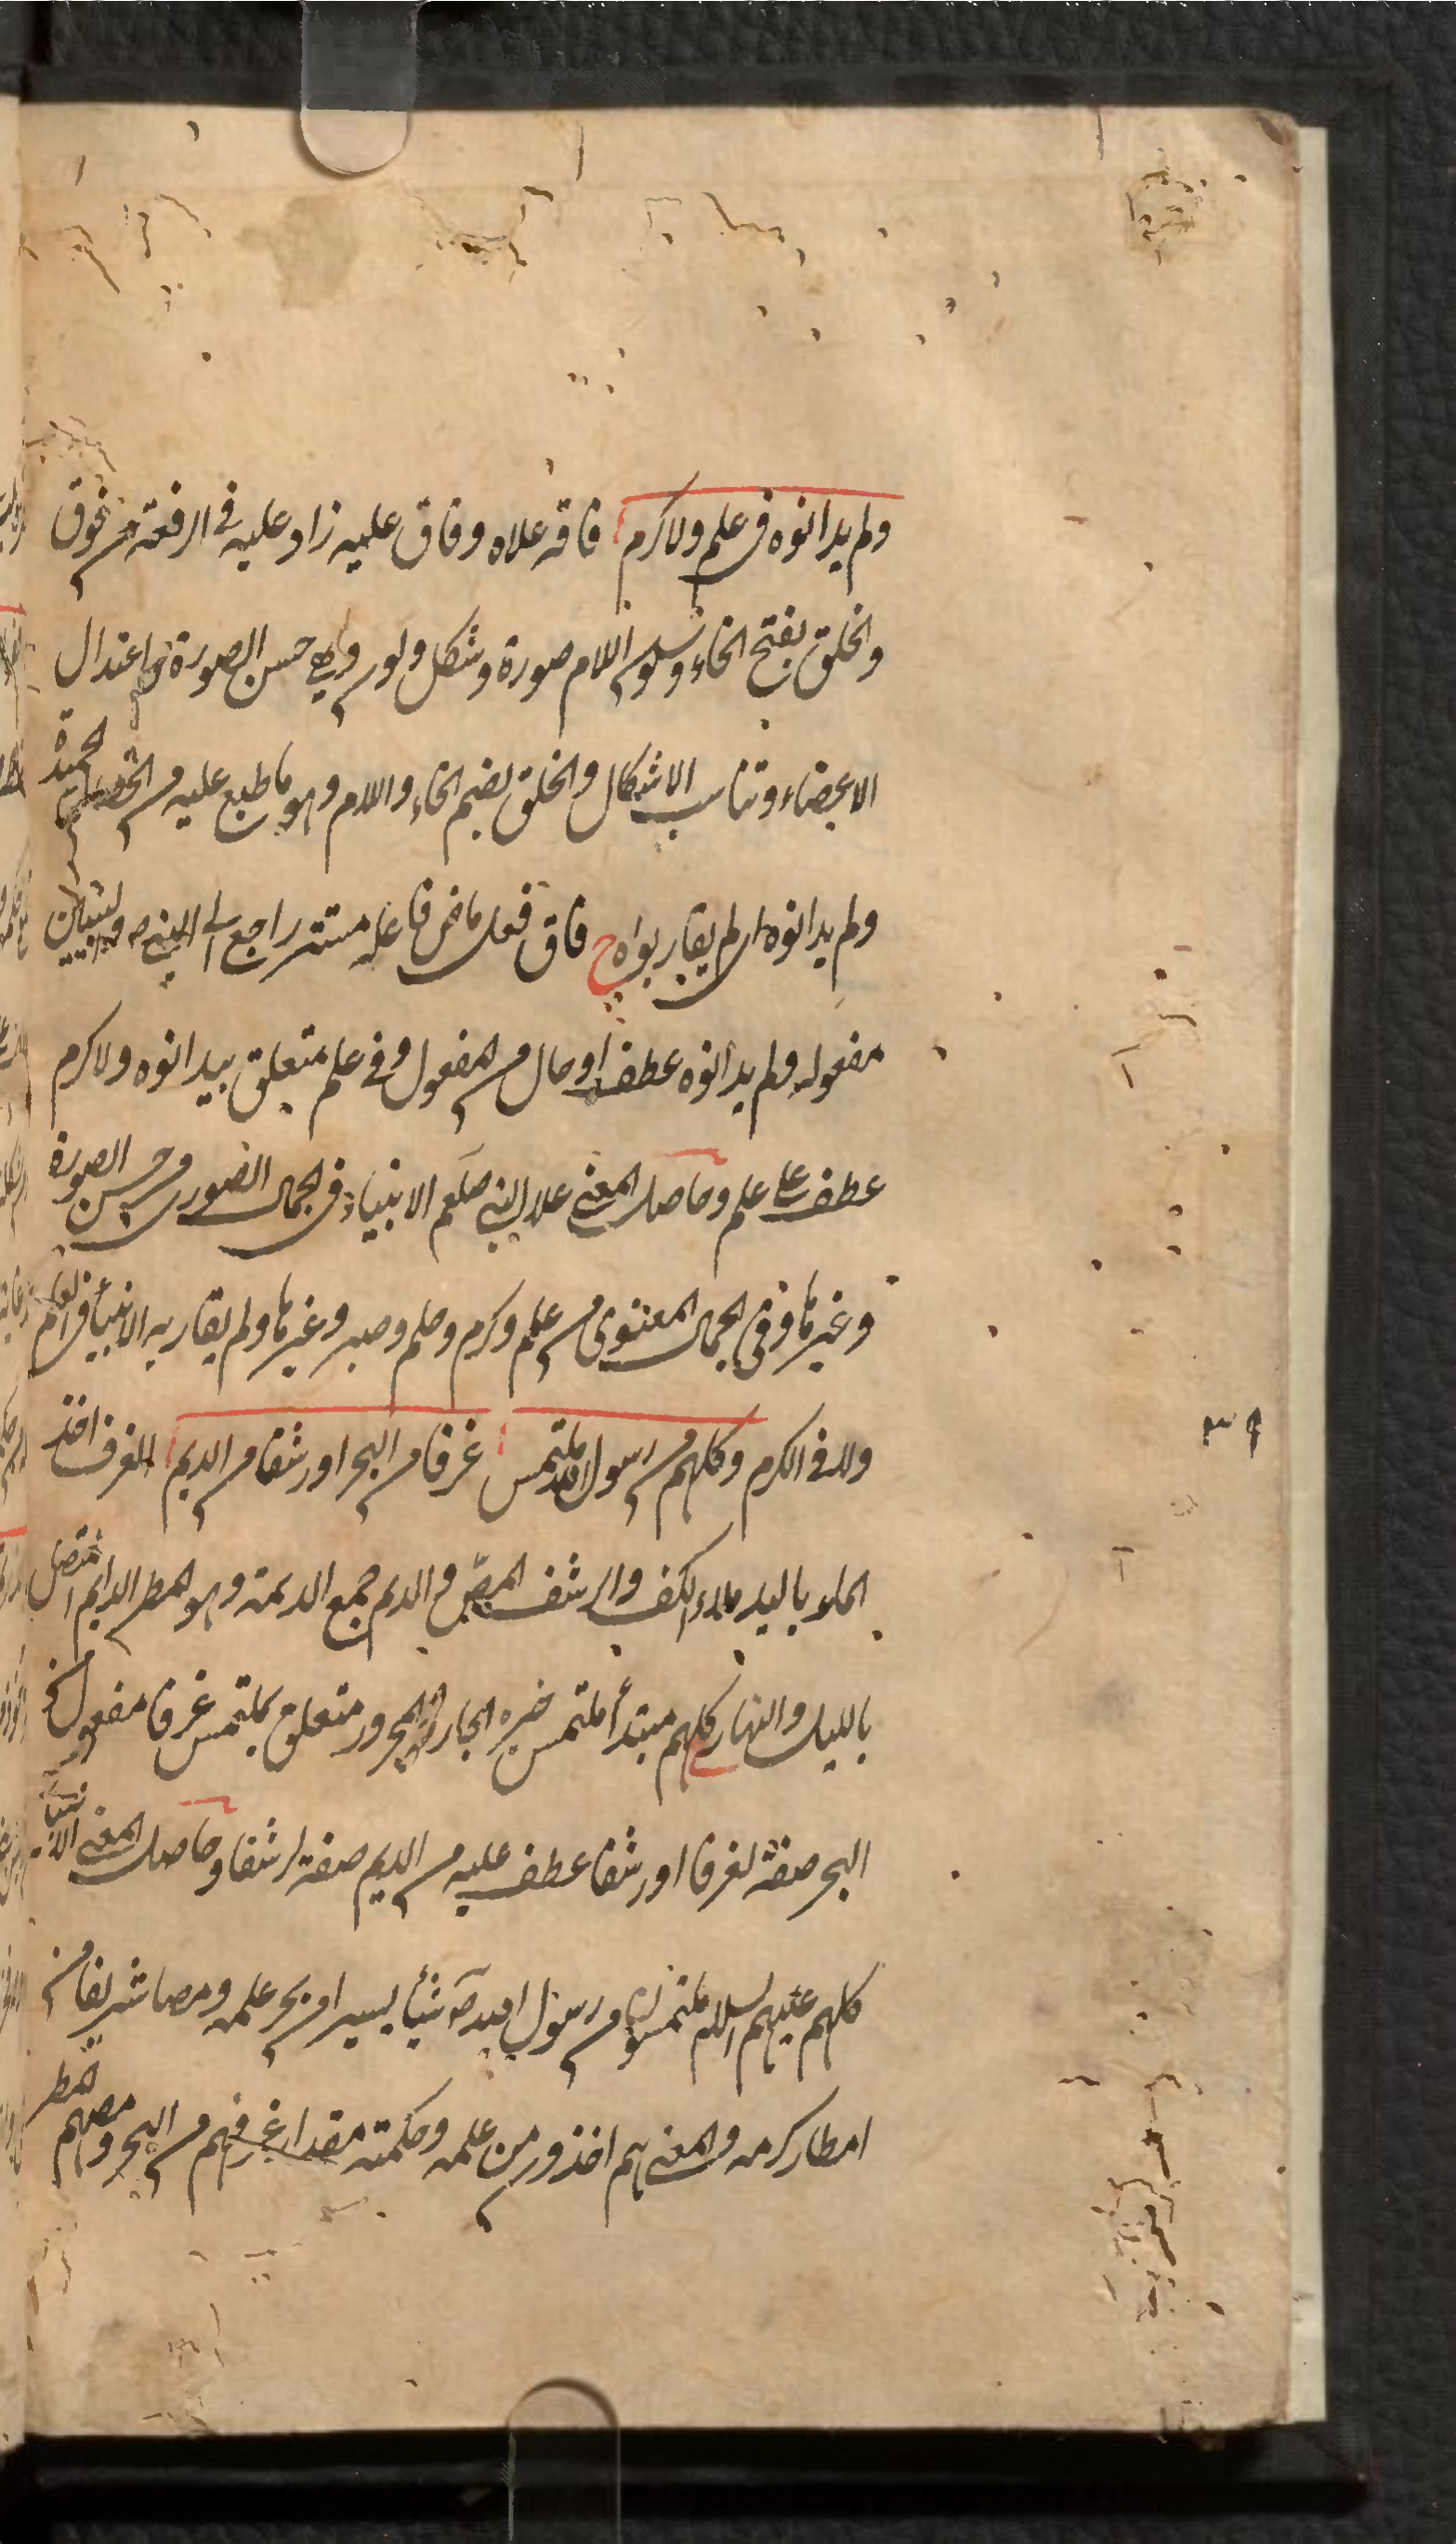 ولم يدانوه فى علم ولا كرم فاقه علاه وفاق عليه زاد عليه فى الرفعة من فوق
والخلق بفتح الخاء وسكون اللام صورة وشكل ولون وهى حسن الصورة واعتدال
الاعضاء وتناسب الاشكال والخلق بضم الخاء واللام وهو ما طبع عليه من الخصلة الحميدة
ولم يدانوه اى لم يقاربواه ح فاق فعل ماض فاعله مستتر راجع الى النبى ص والنبيين
مفعوله ولم يدانوه عطف او حال من المفعول وفى علم متعلق بيدانوه ولا كرم
عطف على علم وحاصل المعنى علا النبى صلعم الانبياء فى الجمال الصورى من حسن الصورة
وغيرها وفى الجمال المعنوى من علم وكرم وحلم وصبر وغيرها ولم يقاربه الانبياء فى العلم
ولا فى الكرم وكلهم من رسول الله ملتمس غرفا من البحر او رشفا من الديم الغرف اخذ
الماء باليد ملاء الكف والرشف المصّ والديم جمع الديمة وهو المطر الدايم المتصل
بالليل والنهار كلهم مبتدأ ملتمس خبره الجار والمجرور متعلق بملتمس غرفا مفعول من
البحر صفة لغرفا او رشفا عطف عليه من الديم صفة لرشفا وحاصل المعنى الانبياء
كلهم عليهم السلام ملتمسون من رسول الله ص شيأ يسيرا من بحر علمه ومصا شريفا من
امطار كرمه والمعنى هم اخذون من علمه وحكمته مقدار غرفهم من البحر ومصهم المطر
٣٩